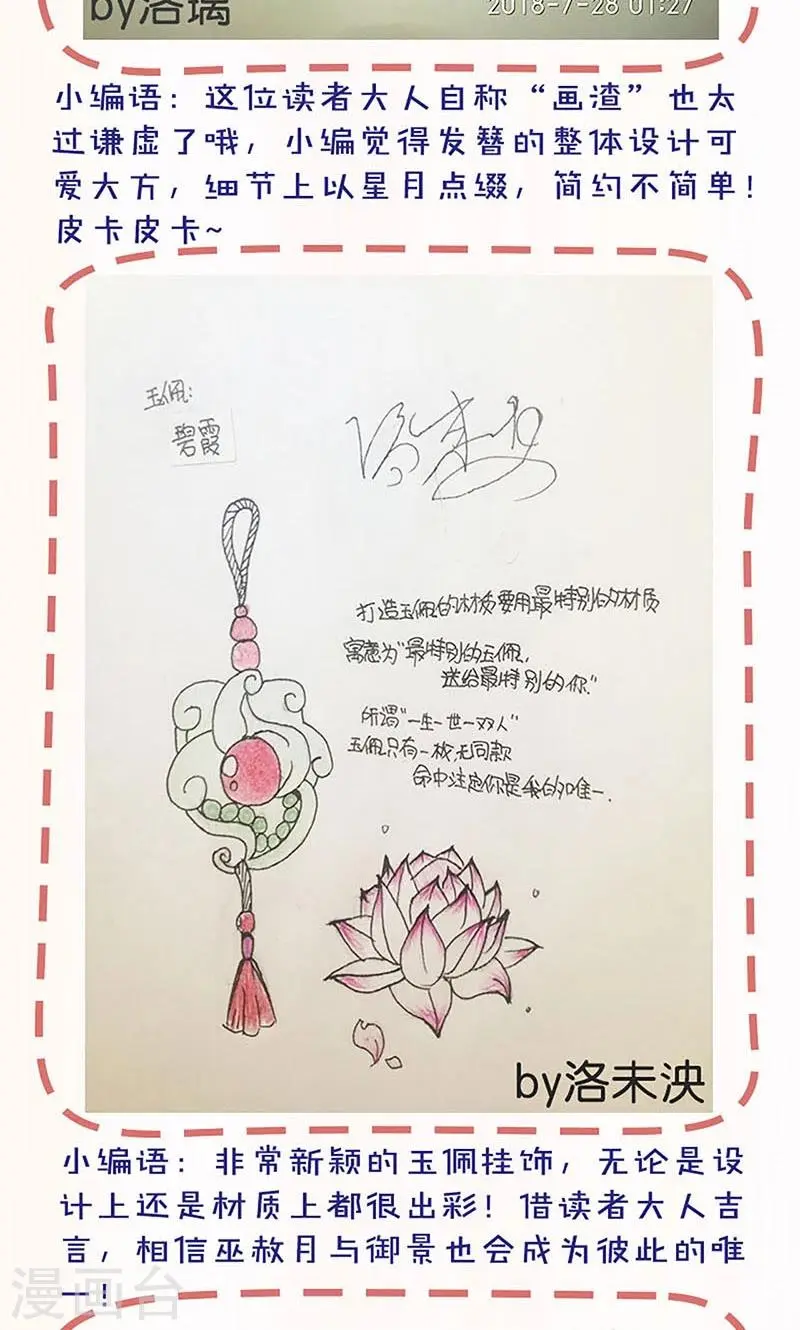 by洛璃
2018-7-28 01:27
小编语：这位读者大人自称“画渣”也太
过谦虚了哦，小编觉得发簪的整体设计可
爱大方，细节上以星月点缀，简约不简单！
皮卡皮卡~
玉佩：
碧霞
洛未央
打造玉佩的材质要用最特别的材质
寓意为“最特别的玉佩，
送给最特别的你”
所谓“一生一世一双人”
玉佩只有一枚，无同款
命中注定你是我的唯一．
by洛未泱
小编语：非常新颖的玉佩挂饰，无论是设
计上还是材质上都很出彩！借读者大人吉
言，相信巫赦月与御景也会成为彼此的唯
一！
漫画台